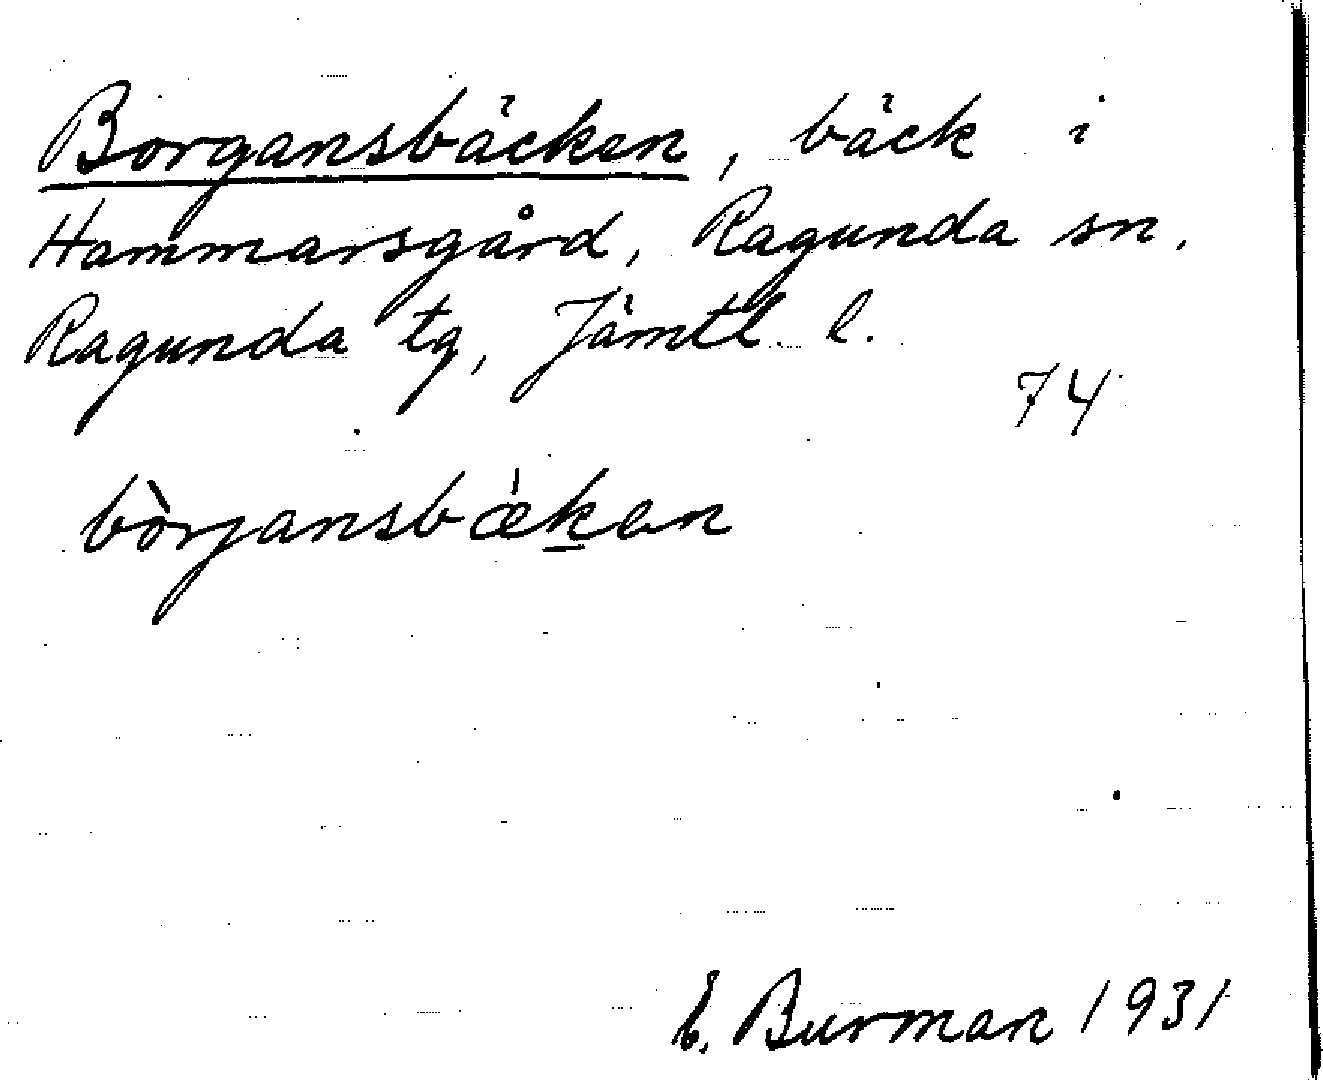 Borgansbäcken, bäck i
Hammarsgård, Ragunda sn.
Ragunda tg, Jämtl. l.
74
bòrjansbǽken
E. Burman 1931